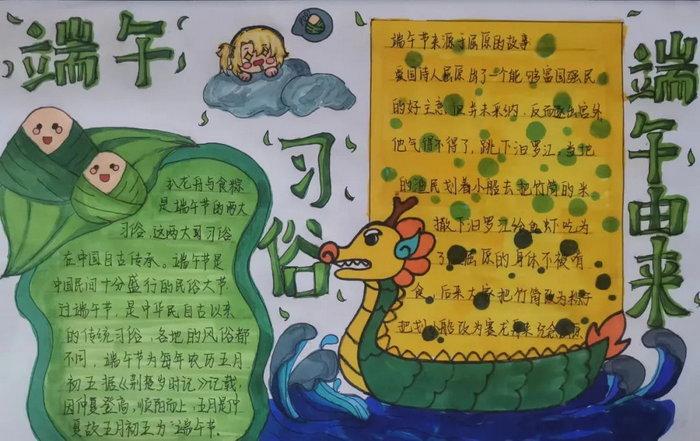 端午
习俗
端午由来
扒龙舟与食粽
是端午节的两大
习俗,这两大习俗
在中国自古传承。端午节是
中国民间十分盛行的民俗大节
过端午节,是中华民自古以来
的传统习俗,各地的风俗都
不同,端午节为每年农历五月
初五据《荆楚岁时记》记载,
因仲夏登高,顺阳而上,五月是仲
夏故五月初五为"端午节.
端午节来源于屈原的故事
爱国诗人屈原出了一个能够富国强民
的好主意 并未采纳,反而逐出宫外
他气得不得了,跳下汨罗江。当地
的渔民划着小船去把竹筒的米
撒下汨罗江给鱼虾吃为
了 屈原的身体不被啃
食。后来大家把竹筒改为粽子
把划小船改为赛龙舟来纪念屈原